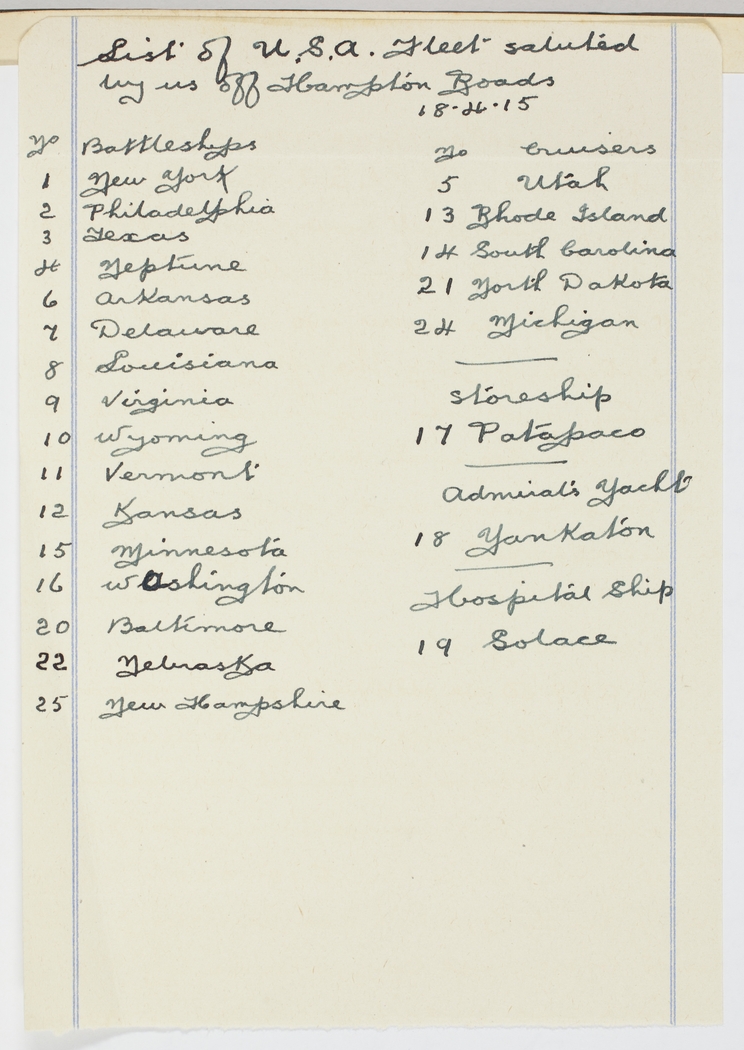 List of U.S.A. Fleet saluted
by us off Hampton Roads
18-4-15
No Battleships
1 New York
2 Philadelphia
3 Texas
4 Neptune
6 Arkansas
7 Delaware
8 Louisiana
9 Virginia
10 Wyoming
11 Vermont
12 Kansas
15 Minnesota
16 Washington
20 Baltimore
22 Nebraska
25 New Hampshire
No Cruisers
5 Utah
13 Rhode Island
14 South Carolina
21 North Dakota
24 Michigan
Storeship
17 Patapaco
Admiral's Yacht
18 Yankaton
Hospital Ship
19 Solace